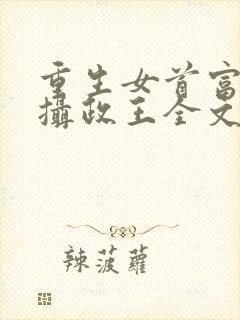 重生女首富
攝政王全文
辣菠蘿